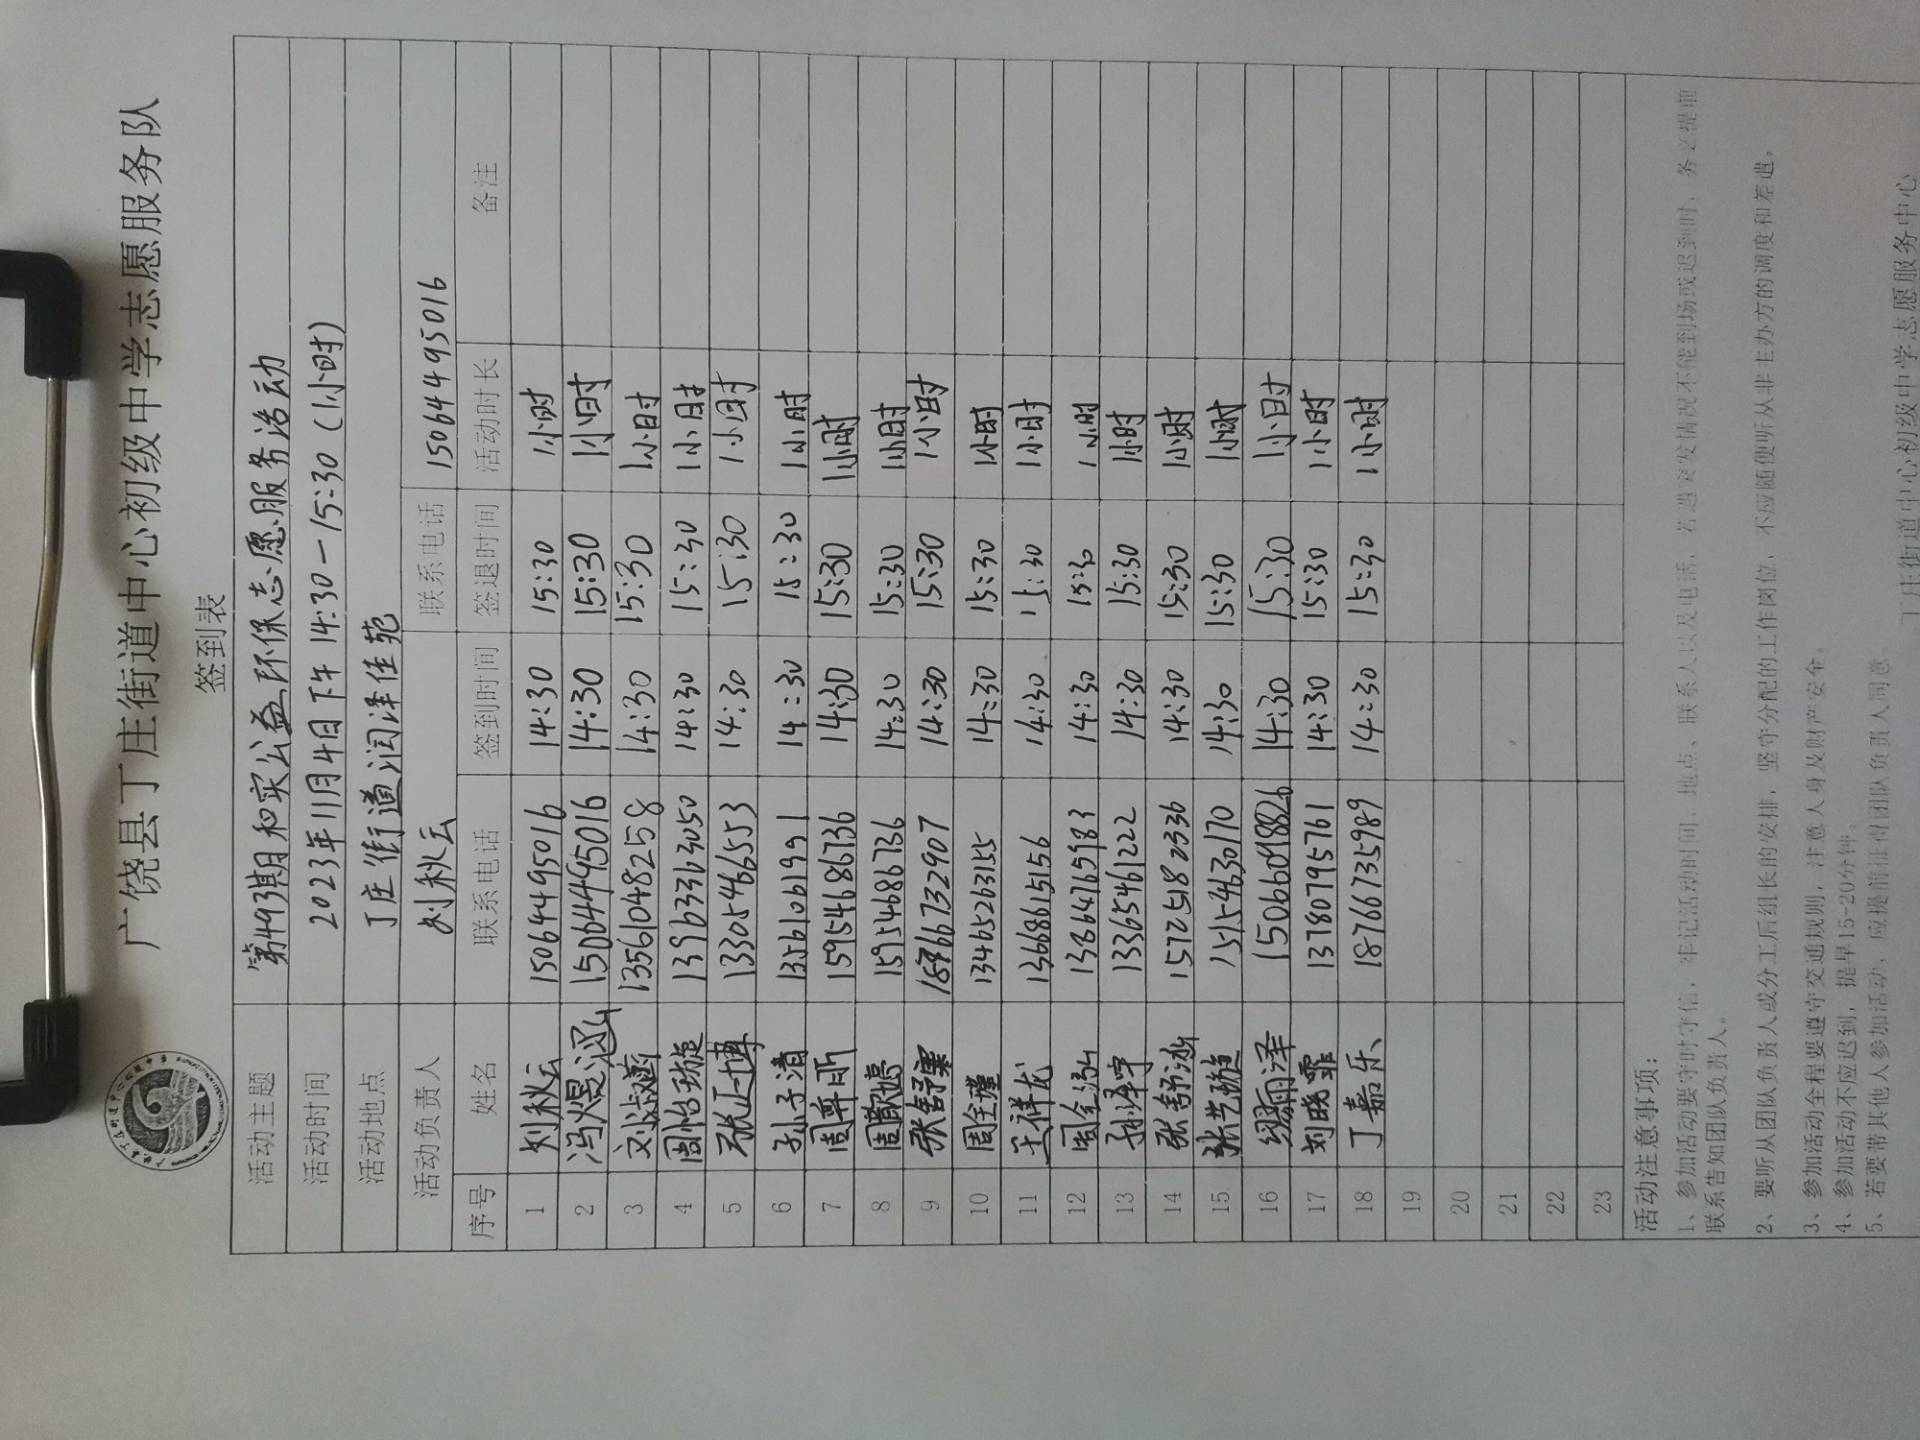 广饶县丁庄街道中心初级中学志愿服务队
签到表
活动主题 第493期和实公益环保志愿服务活动
活动时间 2023年11月4日下午14:30—15:30(1小时)
活动地点 丁庄街道润泽佳苑
活动负责人 刘秋云 联系电话 15064495016
序号 姓名 联系电话 签到时间 签退时间 活动时长 备注
1 刘秋云 15064495016 14:30 15:30 1小时
2 冯煜涵 15064495016 14:30 15:30 1小时
3 刘淑蕲 13561048258 14:30 15:30 1小时
4 周怡璇 13963363050 14:30 15:30 1小时
5 张正博 13305466553 14:30 15:30 1小时
6 孙子清 13561061991 14:30 15:30 1小时
7 周尊昕 15954686736 14:30 15:30 1小时
8 周歆婷 15954686736 14:30 15:30 1小时
9 张舒 14:30 15:30 1小时
10 周全瑾 13465263155 14:30 15:30 1小时
11 王祥龙 13668615156 14:30 15:30 1小时
12 周全泓 13864765983 14:30 15:30 1小时
13 孙泽宇 13365461222 14:30 15:30 1小时
14 张舒涵 15725182336 14:30 15:30 1小时
15 张艺璇 15154630170 14:30 15:30 1小时
16 缪雨泽 15066091882 14:30 15:30 1小时
17 刘晓霏 13780795761 14:30 15:30 1小时
18 丁嘉乐 18766735989 14:30 15:30 1小时
19
20
21
22
23
活动注意事项:
1、参加活动要守时守信,牢记活动时间、地点、联系人以及电话,若遇突发情况不能到场或迟到时,务必提前
联系告知团队负责人。
2、要听从团队负责人或分工后组长的安排,坚守分配的工作岗位,不应随便听从非主办方的调度和差遣。
3、参加活动全程要遵守交通规则,注意人身及财产安全。
4、参加活动不应迟到,提早15-20分钟。
5、若要带其他人参加活动,应提前征得团队负责人同意。
丁庄街道中心初级中学志愿服务中心